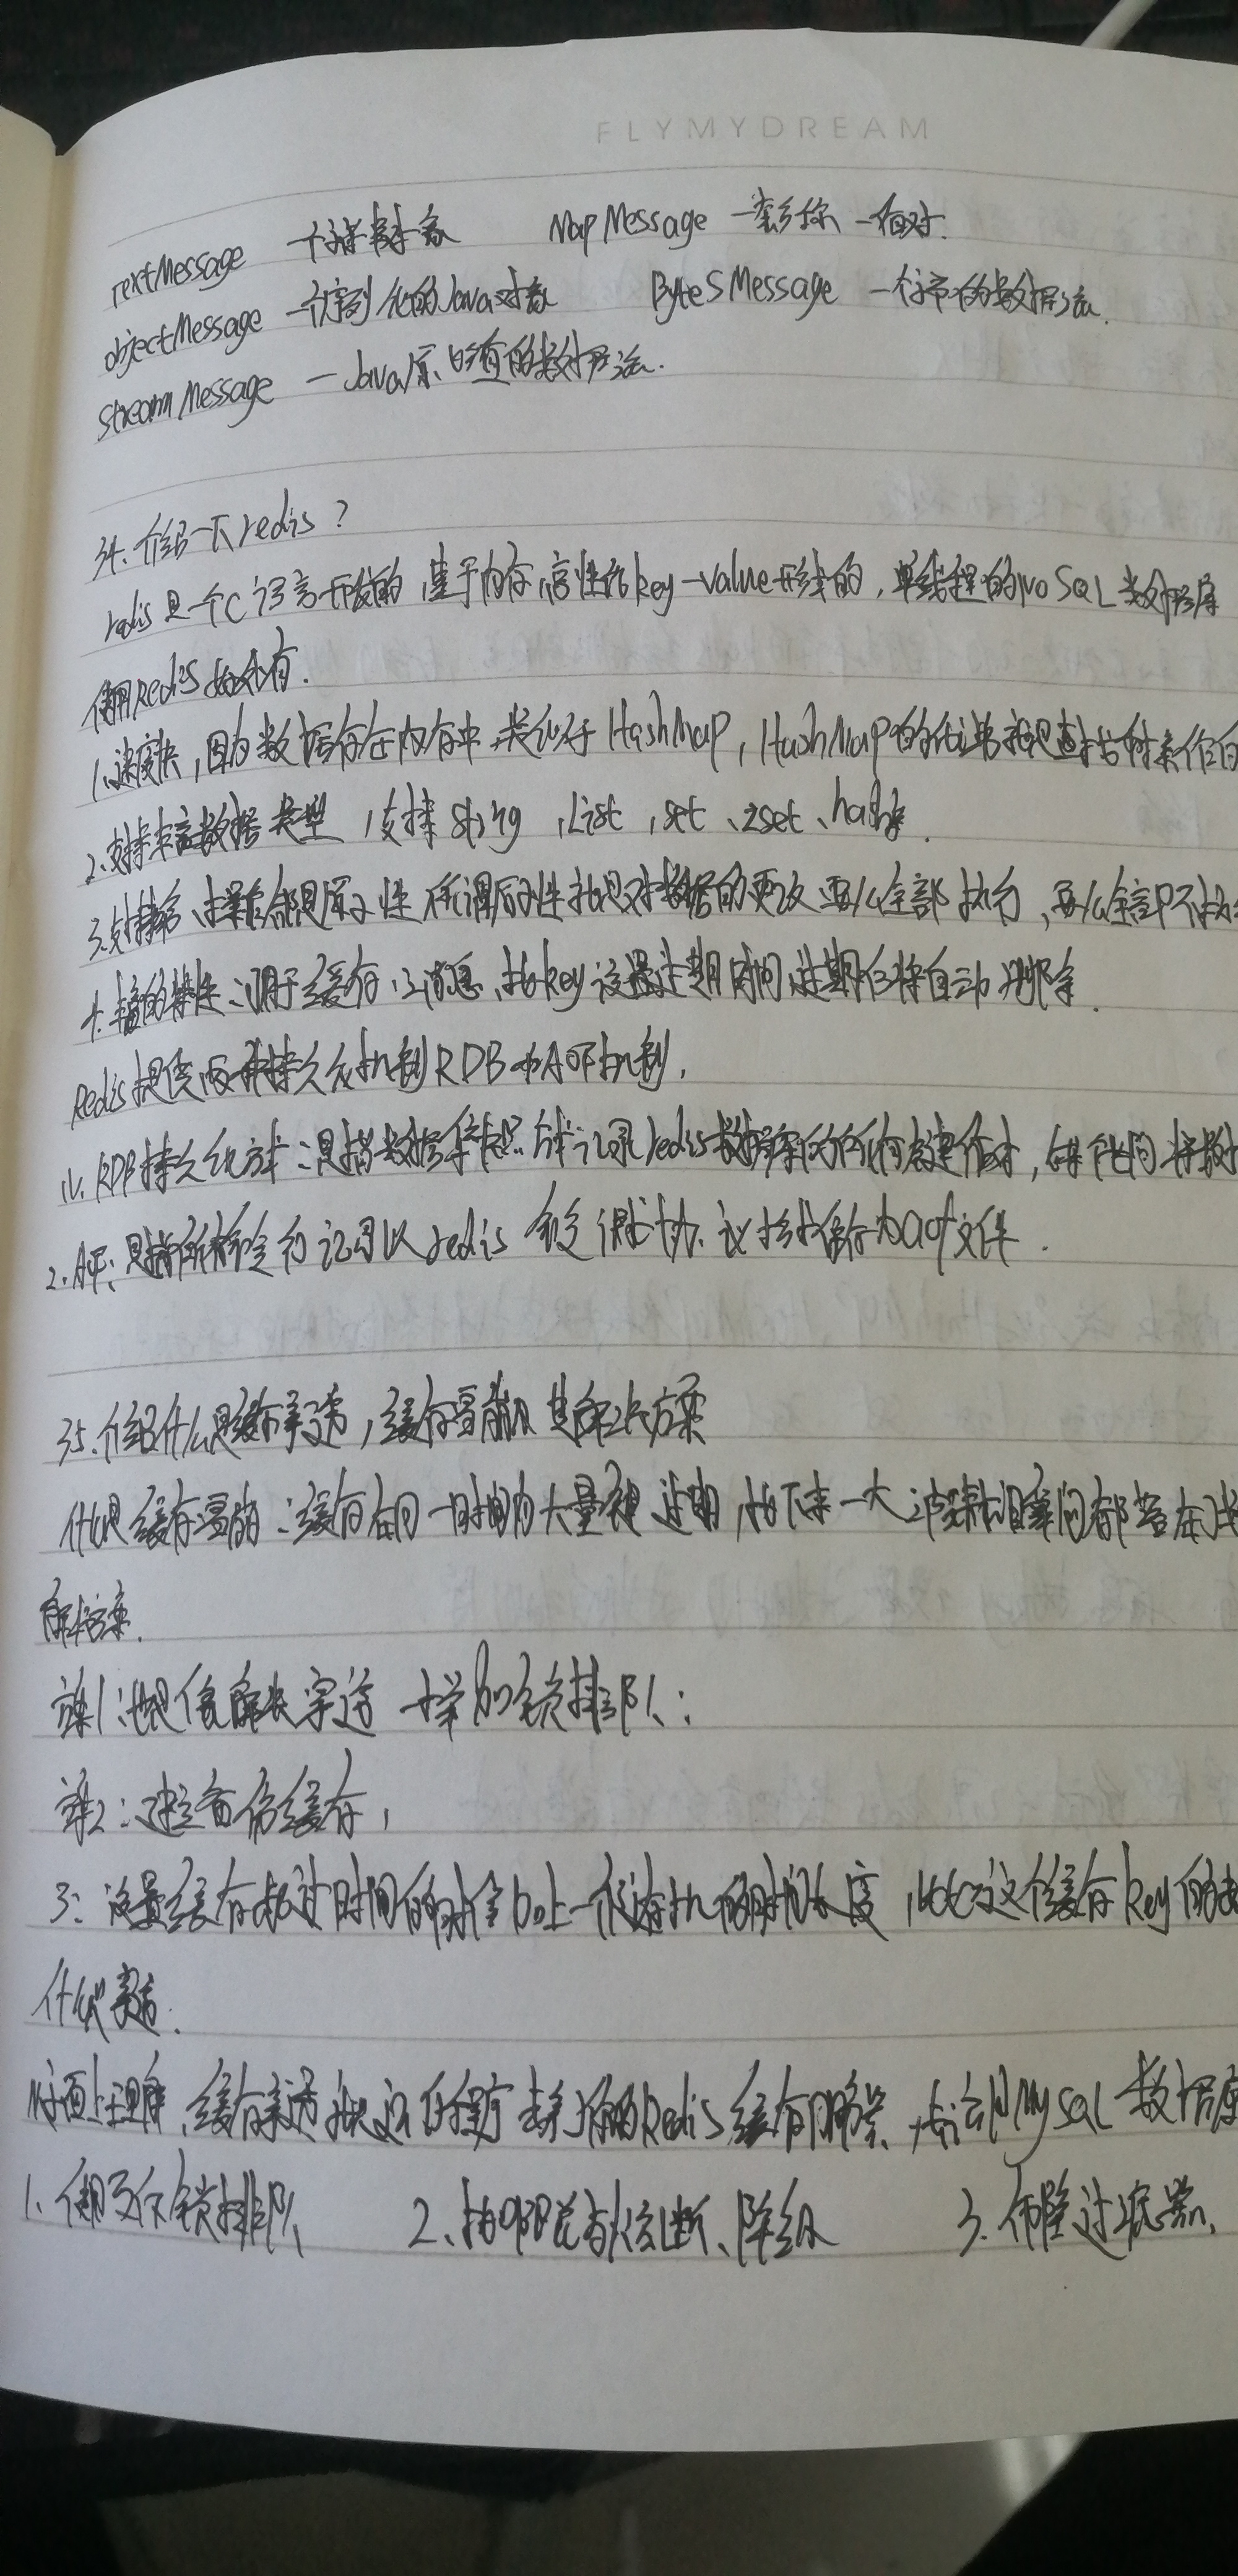 FLYMYDREAM
TextMessage 一个字符串对象 MapMessage 一套名称一值对.
objectMessage 一个序列化的Java对象 BytesMessage 一个字节的数据流.
StreamMessage — Java原始值的数据流.
34. 介绍一下redis?
redis是一个C语言开发的,基于内存,高性能key-value形式的,单线程的NoSQL数据库
使用Redis好处有.
1、速度快,因为数据存在内存中,类似于HashMap,HashMap的优势就是查找和操作的
2、支持丰富数据类型,支持string,List,set、zset、hash等.
3、支持事务、操作都是原子性 所谓原子性就是对数据的更改要么全部执行,要么全部不执
4、丰富的特性:可用于缓存,消息,按key设置过期时间,过期后将自动删除.
Redis提供两种持久化机制RDB和AOF机制,
1、RDB持久化方式:是指数据集快照方式记录redis数据库的所有键值对,
2、AOF:是指所有命令行记录以redis命令请求协议 保存为aof文件.
35、介绍什么是缓存穿透,缓存雪崩及其解决方案
什么是缓存雪崩:缓存在同一时间内大量键过期,接下来一大波请求瞬间都落在
解决方案.
方案1:也是像解决穿透一样加锁排队:
方案2:建立备份缓存,
3:设置缓存超时时间的时候加上一个随机的时间长度,比如这个缓存key的
什么是穿透.
从字面上理解,缓存穿透 Redis缓存服务, MySQL数据库
1、使用互斥锁排队、 2、接口限流与熔断、降级 3、布隆过滤器、